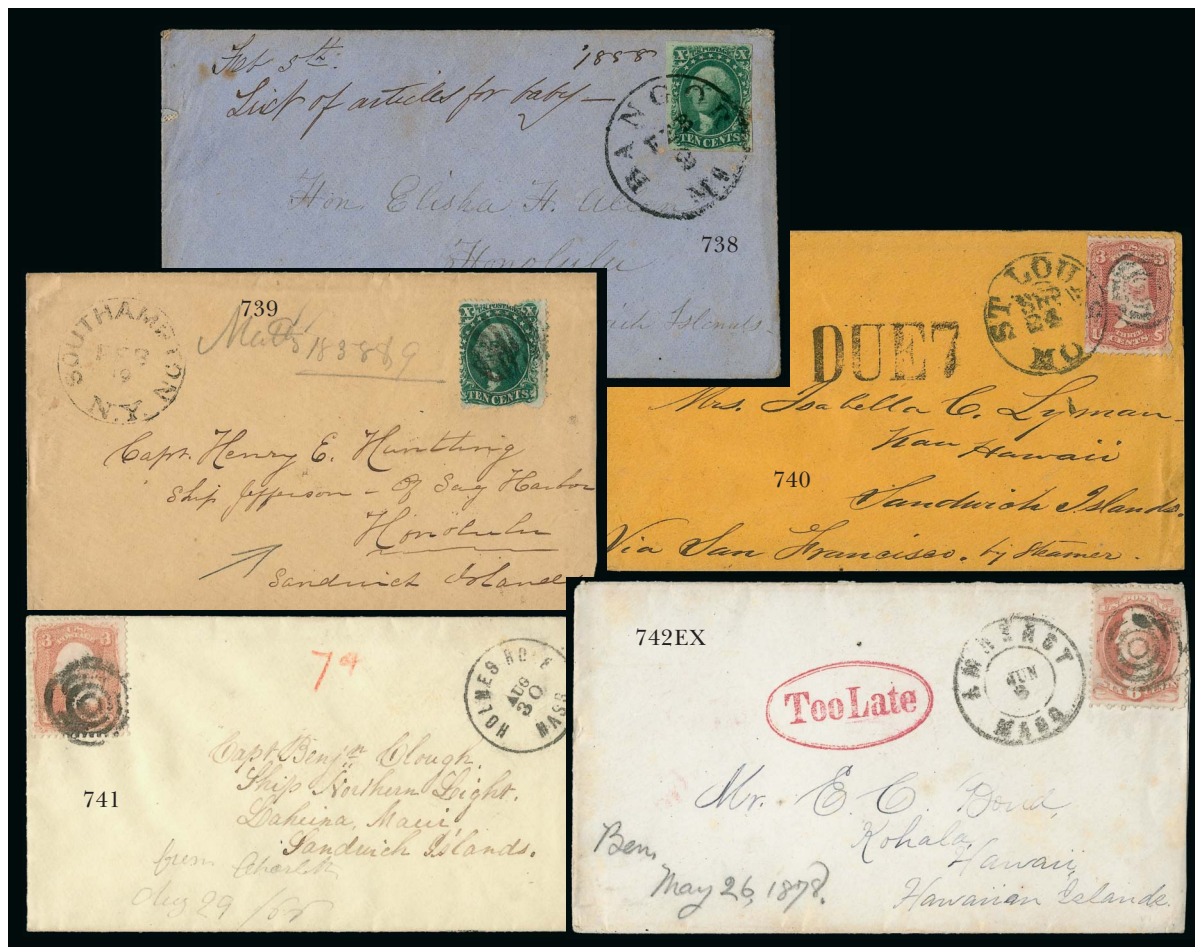 Feb 5th. 1858
List of articles for baby—
BANGOR
FEB
Me
X X
TEN CENTS
Hon. Elisha H. Allen
Honolulu
Islands.
738
739
SOUTHAMPTON N.Y.
19
X X
U.S. POSTAGE
TEN CENTS
Capt. Henry E. Huntting
Ship Jefferson – of Sag Harbor
Honolulu
Sandwich Island
ST LOUIS
24
MO
3 3
DUE 7
Mrs. Isabella C. Lyman
Kau Hawaii
740
Sandwich Islands.
Via San Francisco. by Steamer.
3 3
7
HOLMES HOLE
AUG
30
MASS
Capt. Benjn Clough.
Ship Northern Light.
741
Laheina, Maui
Sandwich Islands.
from
Aug 29
742EX
Too Late
AMHERST
JUN
MASS
Mr. E. C. Bond,
Kohala,
Hawaii,
Hawaiian Islands.
Ben,
May 26, 1878.